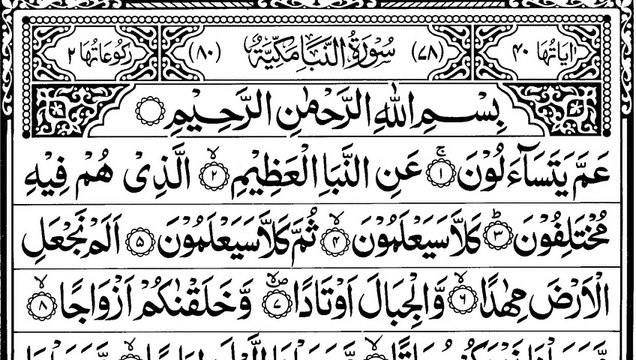 اٰيَاتُهَا ٤٠ (٧٨) سُوْرَةُ النَّبَاِ مَكِّيَّةٌ (٨٠) رُكُوْعَاتُهَا ٢
بِسْمِ اللّٰهِ الرَّحْمٰنِ الرَّحِيْمِ
عَمَّ يَتَسَآءَلُوْنَ ۚ﴿١﴾ عَنِ النَّبَاِ الْعَظِيْمِ ۙ﴿٢﴾ الَّذِىْ هُمْ فِيْهِ
مُخْتَلِفُوْنَ ؕ﴿٣﴾ كَلَّا سَيَعْلَمُوْنَ ۙ﴿٤﴾ ثُمَّ كَلَّا سَيَعْلَمُوْنَ ﴿٥﴾ اَلَمْ نَجْعَلِ
الْاَرْضَ مِهٰدًا ۙ﴿٦﴾ وَّالْجِبَالَ اَوْتَادًا ۪ۙ﴿٧﴾ وَّخَلَقْنٰكُمْ اَزْوَاجًا ۙ﴿٨﴾